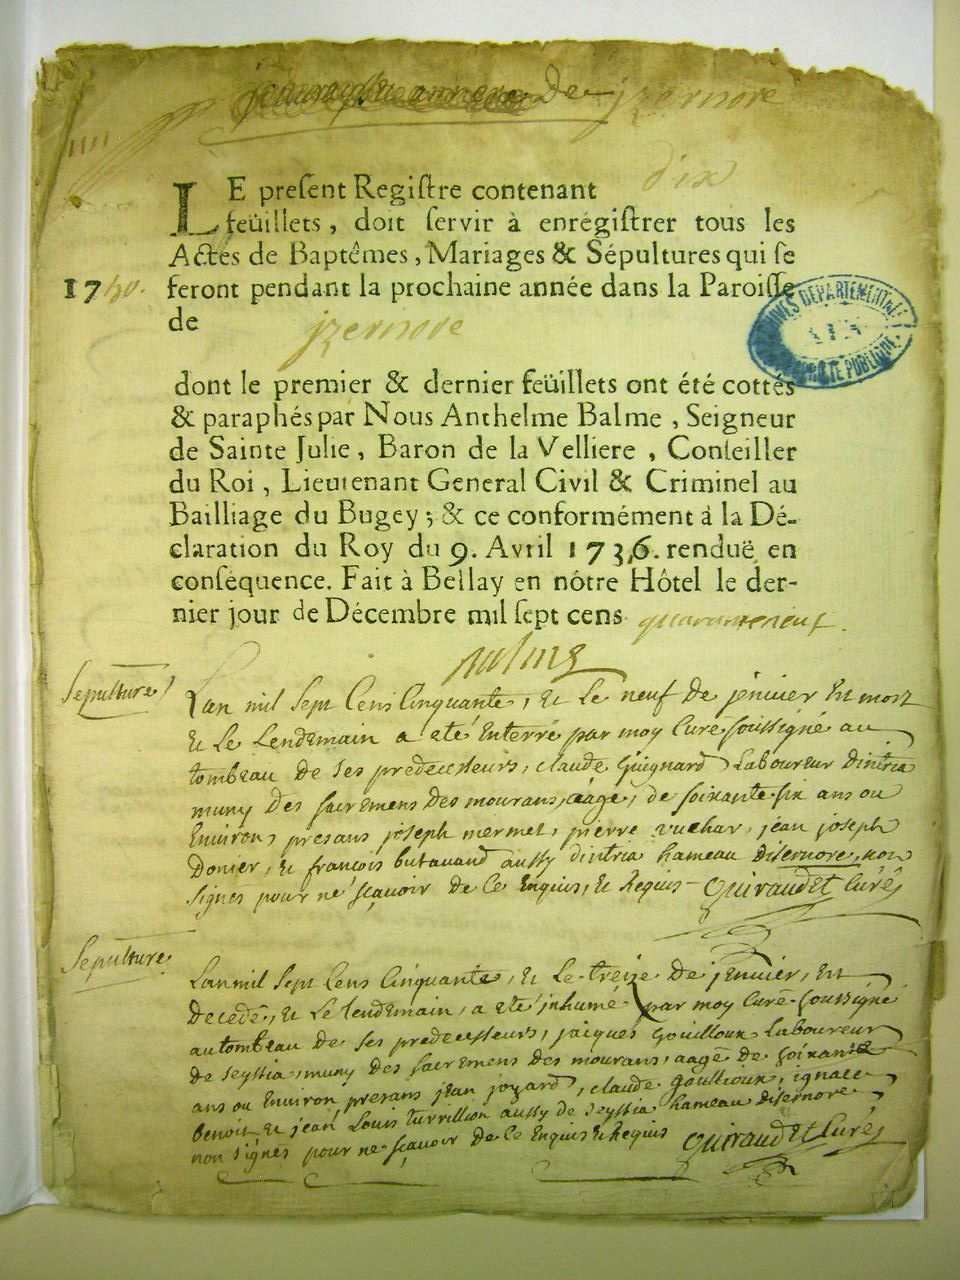 de jzernore
dix
LE preſent Regiſtre contenant
feüillets, doit ſervir à enrégiſtrer tous les
Actes de Baptêmes, Mariages & Sépultures qui ſe
1750. feront pendant la prochaine année dans la Paroiſſe
de jzernore
ARCHIVES DEPARTEMENTALES
PROPRIETE PUBLIQUE
dont le premier & dernier feüillets ont été cottés
& paraphés par Nous Anthelme Balme, Seigneur
de Sainte Julie, Baron de la Velliere, Conſeiller
du Roi, Lieutenant General Civil & Criminel au
Bailliage du Bugey; & ce conformément à la Dé-
claration du Roy du 9. Avril 1736. renduë en
conſéquence. Fait à Bellay en nôtre Hôtel le der-
nier jour de Décembre mil ſept cens quaranteneuf.
Balme
Sepulture
Lan mil Sept Cens Cinquante, et Le neuf De jenvier Est mort
Et Le Lendemain a eté Enterré par moy Curé soussigné au
tombeau De Ses predecesseurs, claude Guignard Laboureur Dintria
muny Des sacremens Des mourans, aagé, de soixante-six ans ou
Environ, presans joseph mermet, pierre vuchar, jean joseph
Donier, et francois butavand aussy dintria hameau Disernore, non
signés pour ne sçavoir De Ce Enquis, et Requis Quiraudet Curé
Sepulture
Lan mil Sept Cens Cinquante, Et Le treize De jenvier, Est
Decedé, et Le lendemain, a eté inhumé par moy Curé soussigné
au tombeau De Ses predecesseurs, jacques Gouilloux Laboureur
De Seyssia, muny Des sacremens Des mourans, aagé De soixante
ans ou Environ presans jean joyard, claude Goullioux, ignace
benoit, et jean Louis turrillion aussy de Seyssia hameau Disernore
non signés pour ne sçavoir De Ce Enquis et Requis Quiraudet Curé